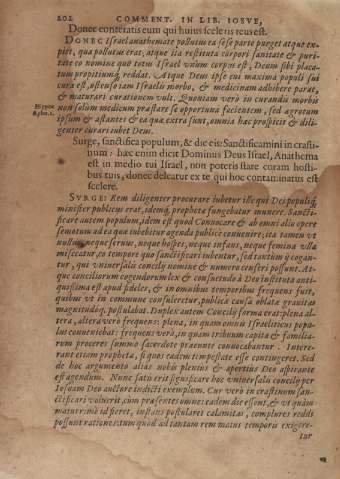 202 COMMENT. IN LIB. IOSVE,
Donec conteratis eum qui huius sceleris reus est.
DONEC Israel anathemate pollutus ea sese parte purget atque ex-
piet, qua pollutus erat, atque ita restituta corpori sanitate & puri-
tate eo nomine quo totus Israel vnum corpus est, Deum sibi placa-
tum propitiumq́; reddat. Atque Deus ipse cui maxima populi sui
cura est, ostenso tam Israelis morbo, & medicinam adhibere parat,
& maturari curationem vult. Quoniam vero in curandis morbis
Hippoc. Aphor. 1.
non solum medicum præstare se opportuna facientem, sed ægrotum
ipsum & astantes & ea quæ extra sunt, omnia hæc prospicit & dili-
genter curari iubet Deus.
Surge, sanctifica populum, & dic eis: Sanctificamini in crasti-
num: hæc enim dicit Dominus Deus Israel, Anathema
est in medio tui Israel, non poteris stare coram hosti-
bus tuis, donec deleatur ex te qui hoc contaminatus est
scelere.
SVRGE: Rem diligenter procurare iubetur ille qui Dei populiq́;
minister publicus erat, idemq́; prophetæ fungebatur munere. Sancti-
ficare autem populum, idem est quod Conuocare & ab omni alio opere
semotum ad ea quæ iubebitur agenda publice conuenire; ita tamen vt
nullus, neque seruus, neque hospes, neque infans, neque femina vlla
misceatur, eo tempore quo sanctificari iubentur, sed tantum ij cogan-
tur, qui vniuersalis concilij nomine & numero censeri possunt. At-
que conciliorum cogendorum lex & consuetudo à Deo instituta anti-
quissima est apud fideles, & in omnibus temporibus frequens fuit,
quibus vt in commune consuleretur, publica causa oblata grauitas
magnitudoq́; postulabat. Duplex autem Concilij forma erat: plena al-
tera, altera vero frequens: plena, in quam omnis Israeliticus popu-
lus conueniebat: frequens vero, in quam tribuum capita & familia-
rum proceres summo sacerdote præeunte conuocabantur. Intere-
rant etiam prophetæ, si quos eadem tempestate esse contingeret. Sed
de hoc argumento alias nobis plenius & apertius Deo aspirante
est agendum. Nunc satis erit significare hoc vniuersalis concilij per
Iosuam Deo auctore indicti exemplum. Cur vero in crastinum san-
ctificari voluerit, cum præsentes omnes eadem die essent, & vt quam
maturrime id fieret, instans postularet calamitas, complures reddi
possunt rationes: tum quod ad tantam rem maius temporis exigere-
tur